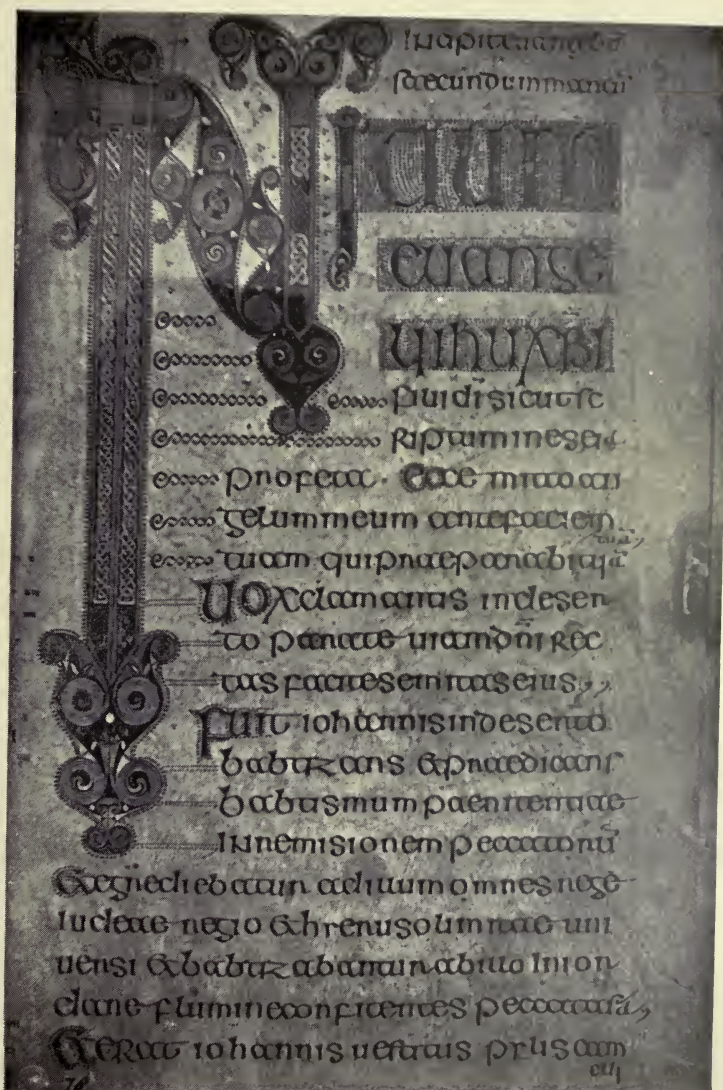 Incipit euangeliu
secundum marcū
INITIUM
euange
lii ihu xpi
filii di sicut sc
riptum in esei
profeta · Ecce mitto an
gelum meum ante faciem
tuam qui praeparabit uiā
tuā,
Uox clamantis in deser
to parate uiam dn̄i rec
tas facite semitas eius,,
Fuit iohannis in deserto
babtizans & praedicans
babtismum paenitentiae
In remisionem peccatorū
& egrediebatur ad illum omnes rege
Iudeae regio & hierusolimitae uni
uersi & babtizabantur ab illo In ior
dane flumine confitentes peccata sā,
& ERAT iohannis uestitus pilis cam
eli